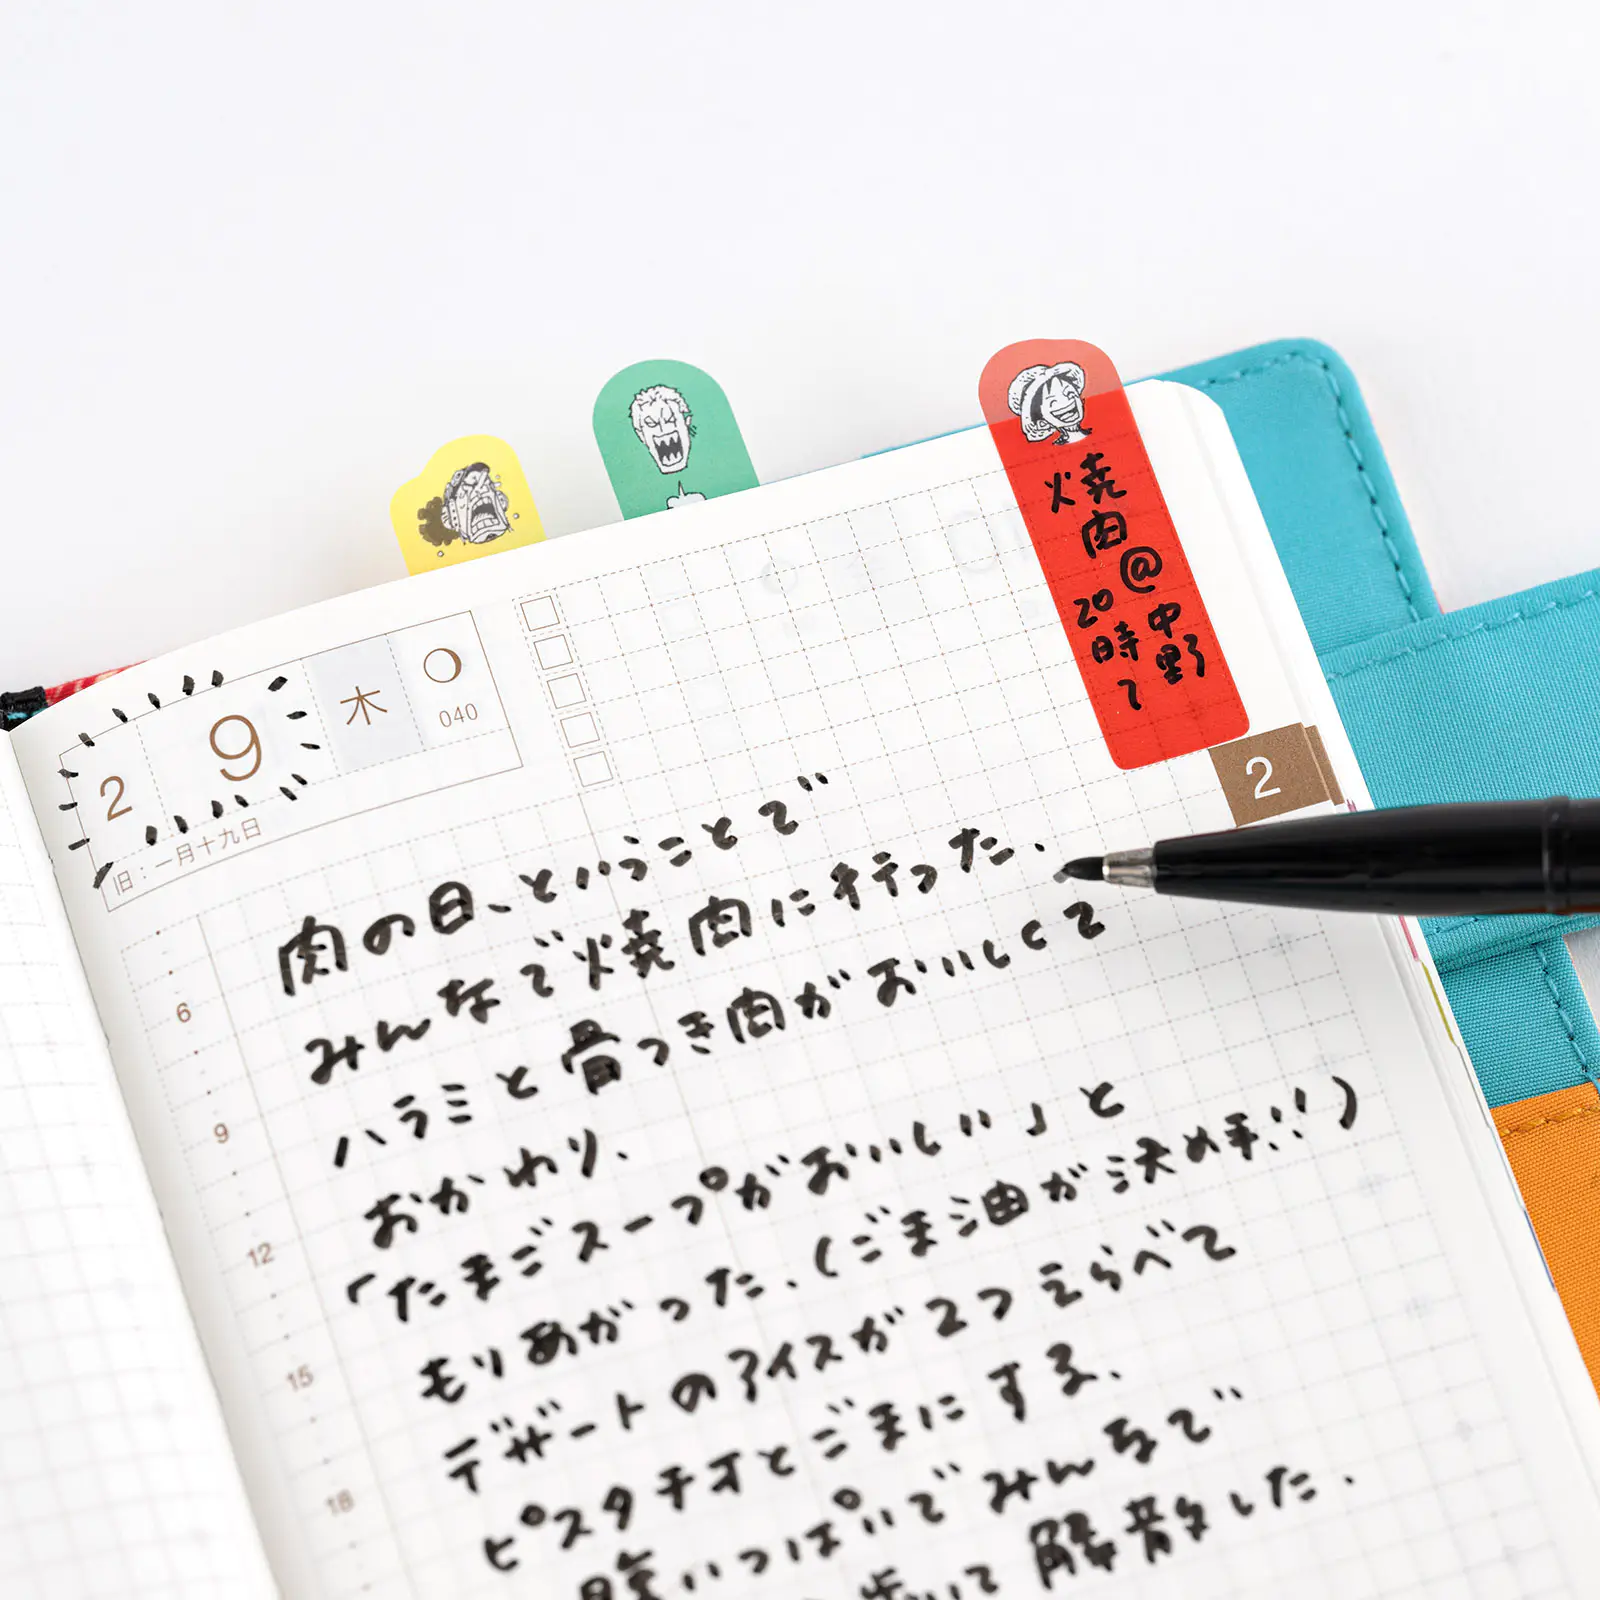 焼肉
@中野
20時〜
2 9 木 040
旧:一月十九日
2
肉の日、ということで
みんなで焼肉に行った.
ハラミと骨つき肉がおいしくて
おかわり.
「たまごスープがおいしい」と
もりあがった.(ごま油が決め手!!)
デザートのアイスが2つえらべて
ピスタチオとごまにする.
腹いっぱいでみんなで
歩いて解散した.
6
9
12
15
18